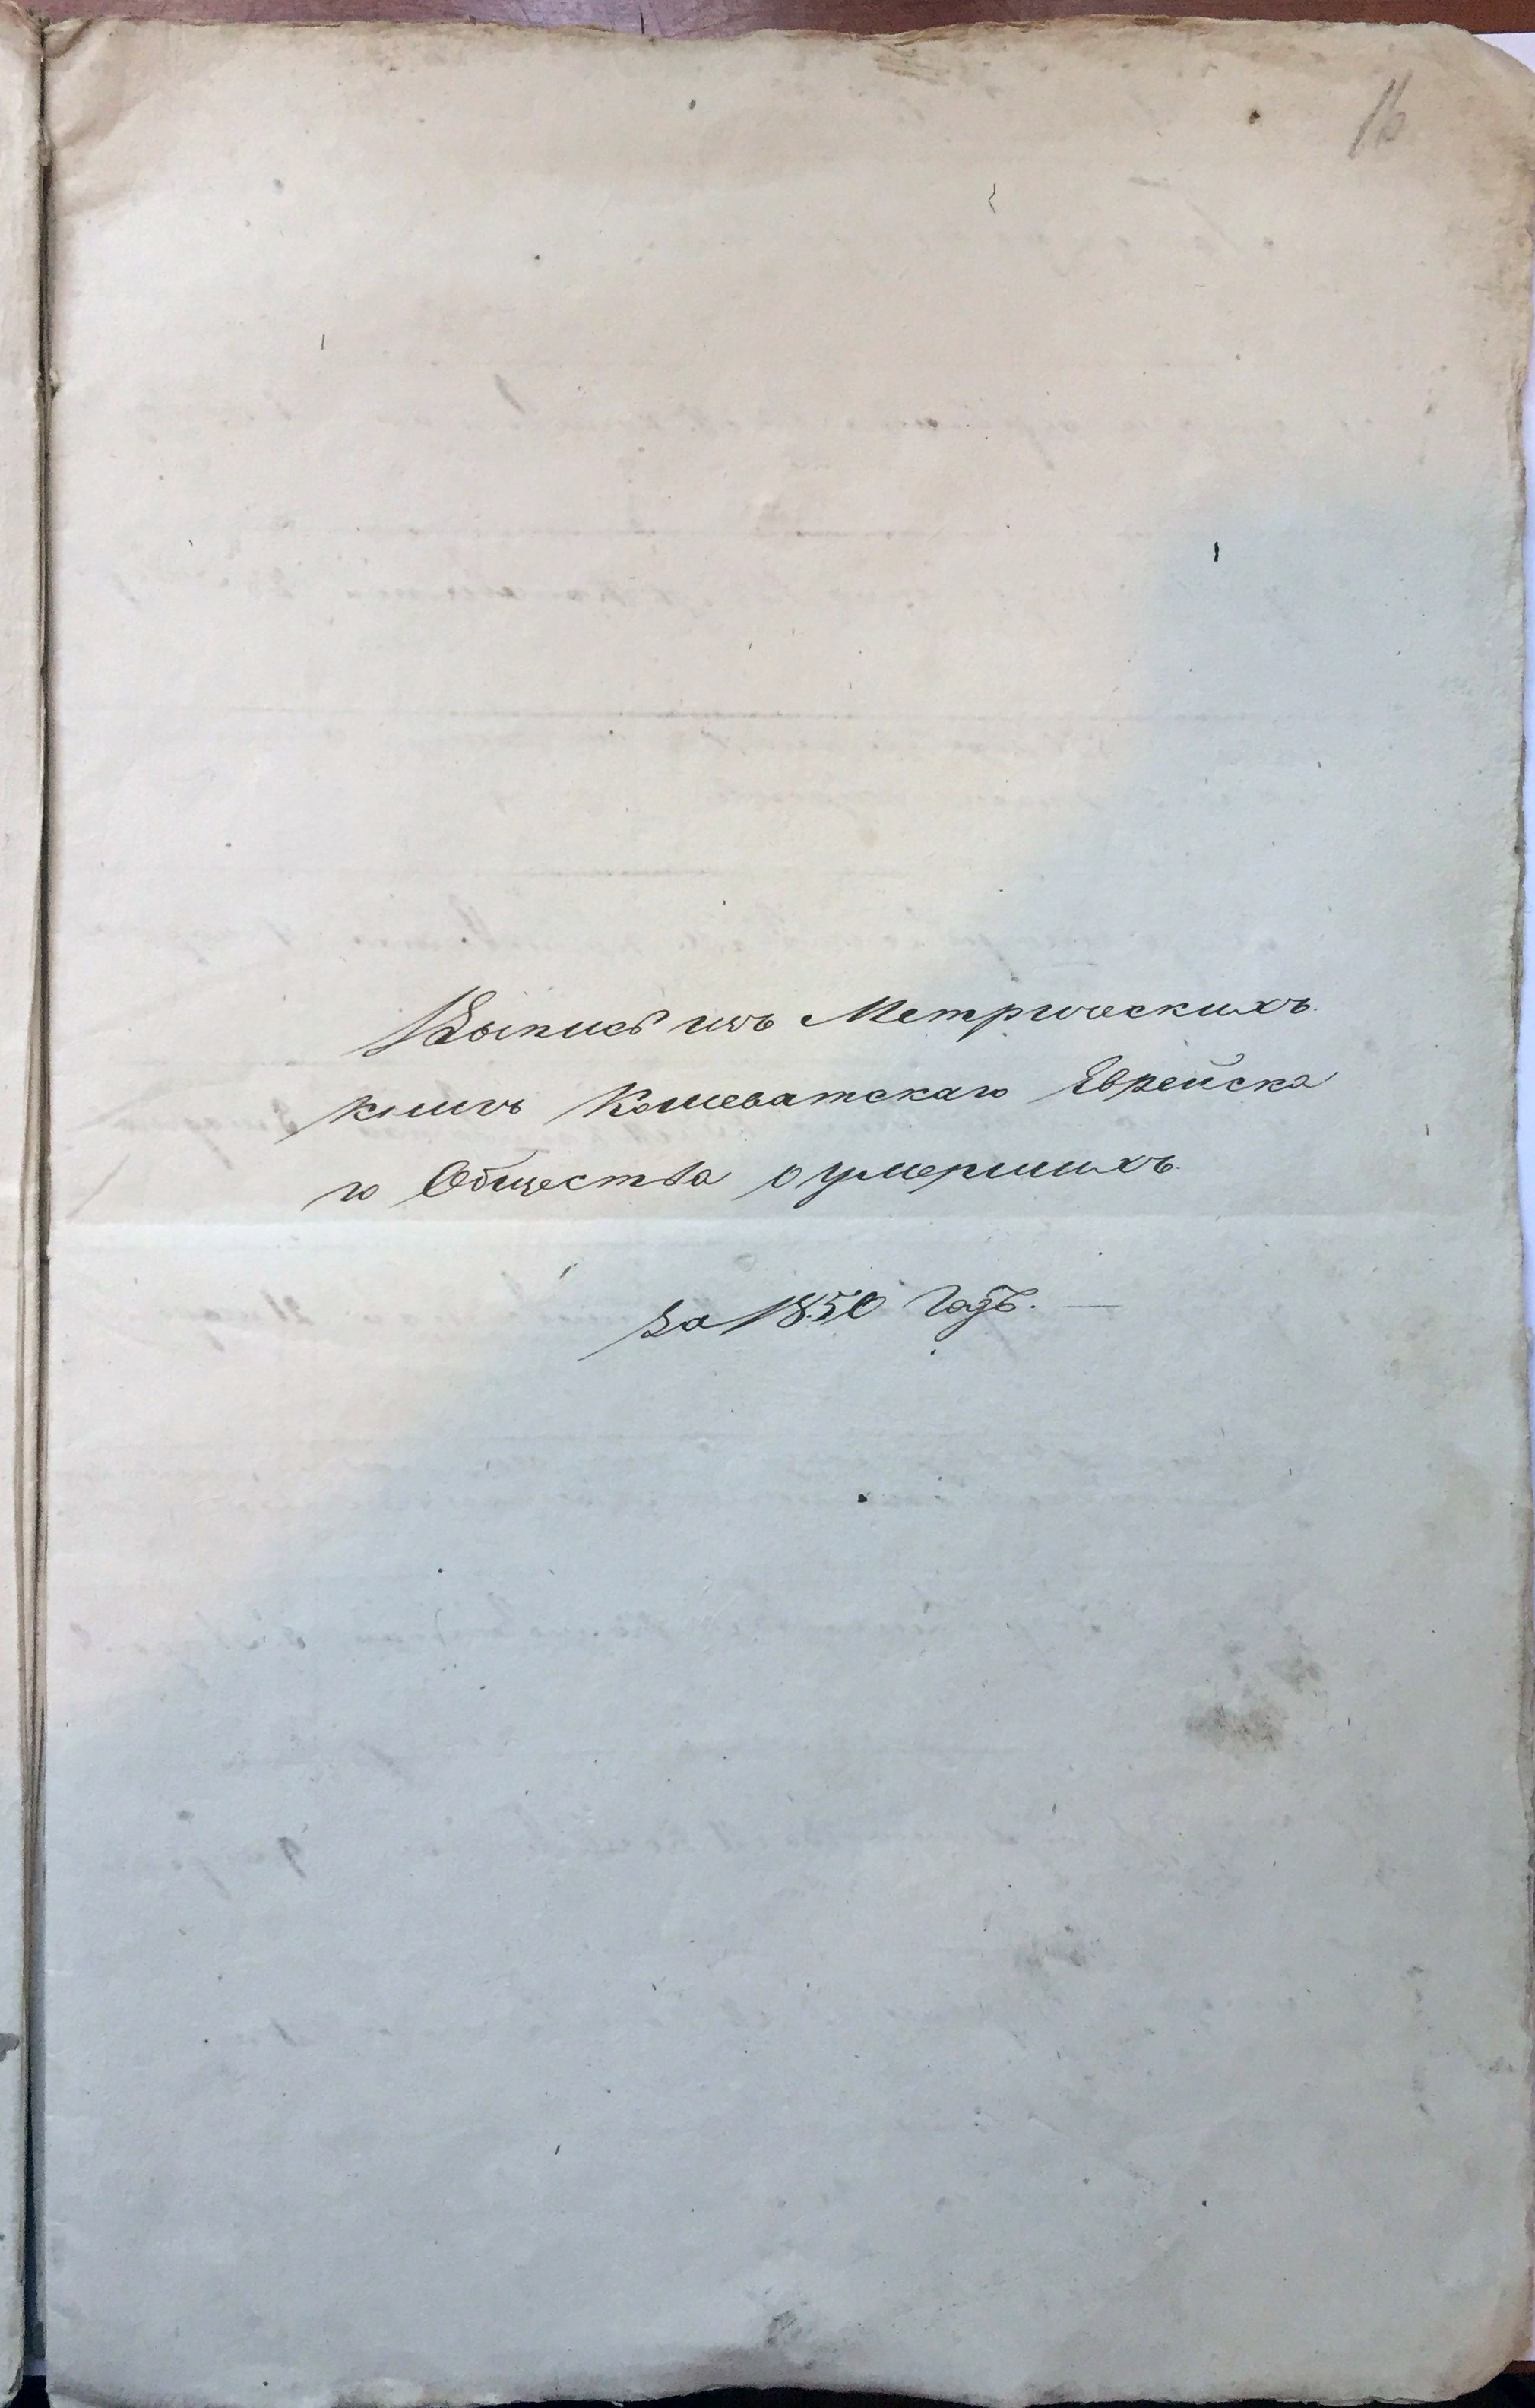 16
Выпись изъ Метрическихъ
книгъ Кошеватскаго Еврейска
го Общества о умершихъ.
за 1850 годъ. —